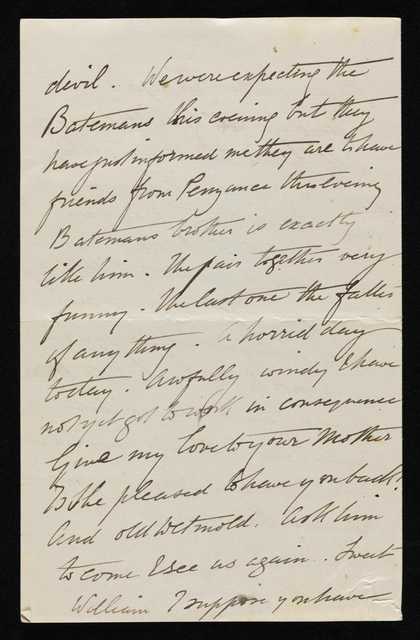 devil. We were expecting the
Batemans this evening but they
have just informed me they are to have
friends from Penzance this evening
Batemans brother is exactly
like him. The pair together very
funny. The last one the fattest
of anything. A horrid day
today. Awfully windy I have
not yet got to work in consequence
Give my love to your Mother
Is she pleased to have you back?
And old Detmold. Ask him
to come & see us again. Sweet
William I suppose you have